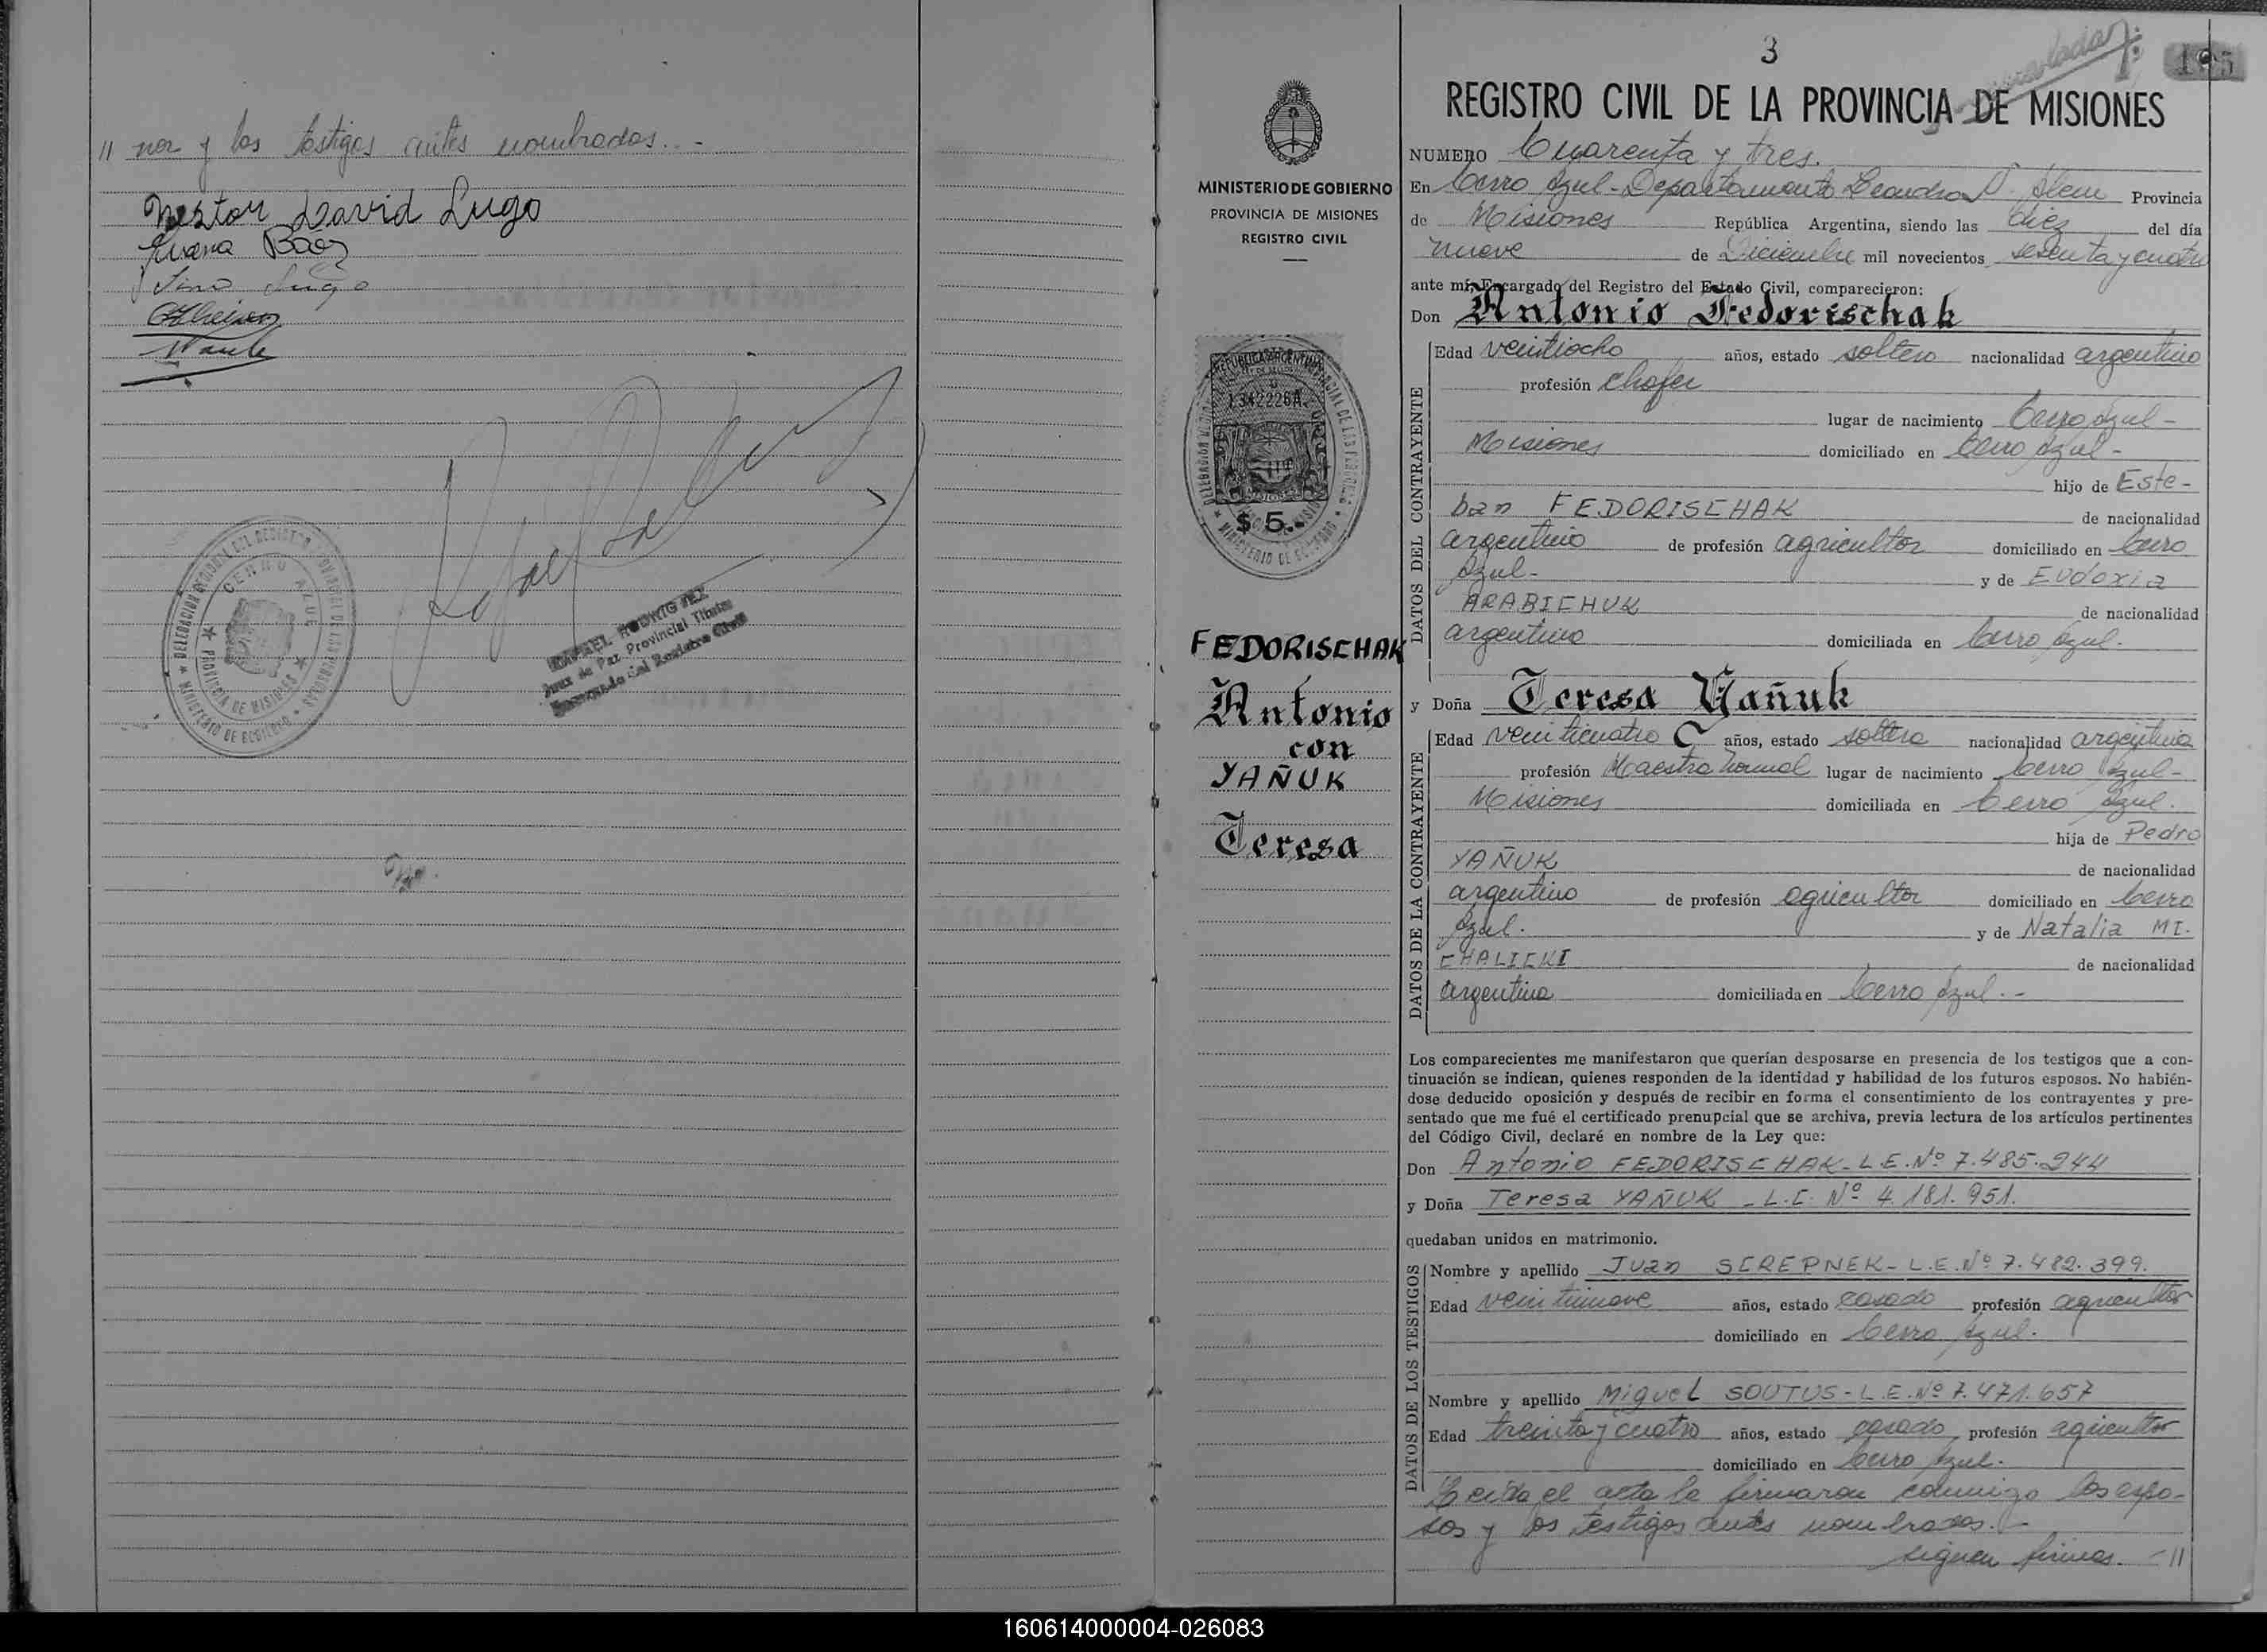 // nor y los testigos antes nombrados. -
Nestor David Lugo
Juana Báez
Lino Lugo
RAFAEL RODRIGUEZ
Juez de Paz Provincial Titular
Encargado del Registro Civil
CERRO AZUL
PROVINCIA DE MISIONES
MINISTERIO DE GOBIERNO
MINISTERIO DE GOBIERNO
PROVINCIA DE MISIONES
REGISTRO CIVIL
REPUBLICA ARGENTINA
1342226A
$ 5.
FEDORISCHAK
Antonio
con
YAÑUK
Teresa
3
REGISTRO CIVIL DE LA PROVINCIA DE MISIONES
NUMERO Cuarenta y tres.
En Cerro Azul - Departamento Leandro N. Alem Provincia
de Misiones República Argentina, siendo las diez del día
nueve de Diciembre mil novecientos sesenta y cuatro
ante mí, Encargado del Registro del Estado Civil, comparecieron:
Don Antonio Fedorischak
DATOS DEL CONTRAYENTE
Edad veintiocho años, estado soltero nacionalidad argentino
profesión chofer
lugar de nacimiento Cerro Azul -
Misiones domiciliado en Cerro Azul -
hijo de Este-
ban FEDORISCHAK de nacionalidad
argentino de profesión agricultor domiciliado en Cerro
Azul - y de Eudoxia
ARABICHUK de nacionalidad
argentina domiciliada en Cerro Azul.
y Doña Teresa Yañuk
DATOS DE LA CONTRAYENTE
Edad veinticuatro años, estado soltera nacionalidad argentina
profesión Maestra Normal lugar de nacimiento Cerro Azul -
Misiones domiciliada en Cerro Azul.
hija de Pedro
YAÑUK de nacionalidad
argentino de profesión agricultor domiciliado en Cerro
Azul. y de Natalia MI-
CHALICKI de nacionalidad
argentina domiciliada en Cerro Azul. -
Los comparecientes me manifestaron que querían desposarse en presencia de los testigos que a con-
tinuación se indican, quienes responden de la identidad y habilidad de los futuros esposos. No habién-
dose deducido oposición y después de recibir en forma el consentimiento de los contrayentes y pre-
sentado que me fué el certificado prenupcial que se archiva, previa lectura de los artículos pertinentes
del Código Civil, declaré en nombre de la Ley que:
Don Antonio FEDORISCHAK - L.E. Nº 7.485.244
y Doña Teresa YAÑUK - L.C. Nº 4.181.951.
quedaban unidos en matrimonio.
DATOS DE LOS TESTIGOS
Nombre y apellido Juan SCREPNEK - L.E. Nº 7.482.399.
Edad veintinueve años, estado casado profesión agricultor
domiciliado en Cerro Azul.
Nombre y apellido Miguel SOUTUS - L.E. Nº 7.471.657
Edad treinta y cuatro años, estado casado, profesión agricultor
domiciliado en Cerro Azul.
Leida el acta la firmaron conmigo los espo-
sos y los testigos antes nombrados. -
siguen firmas. - //
160614000004-026083